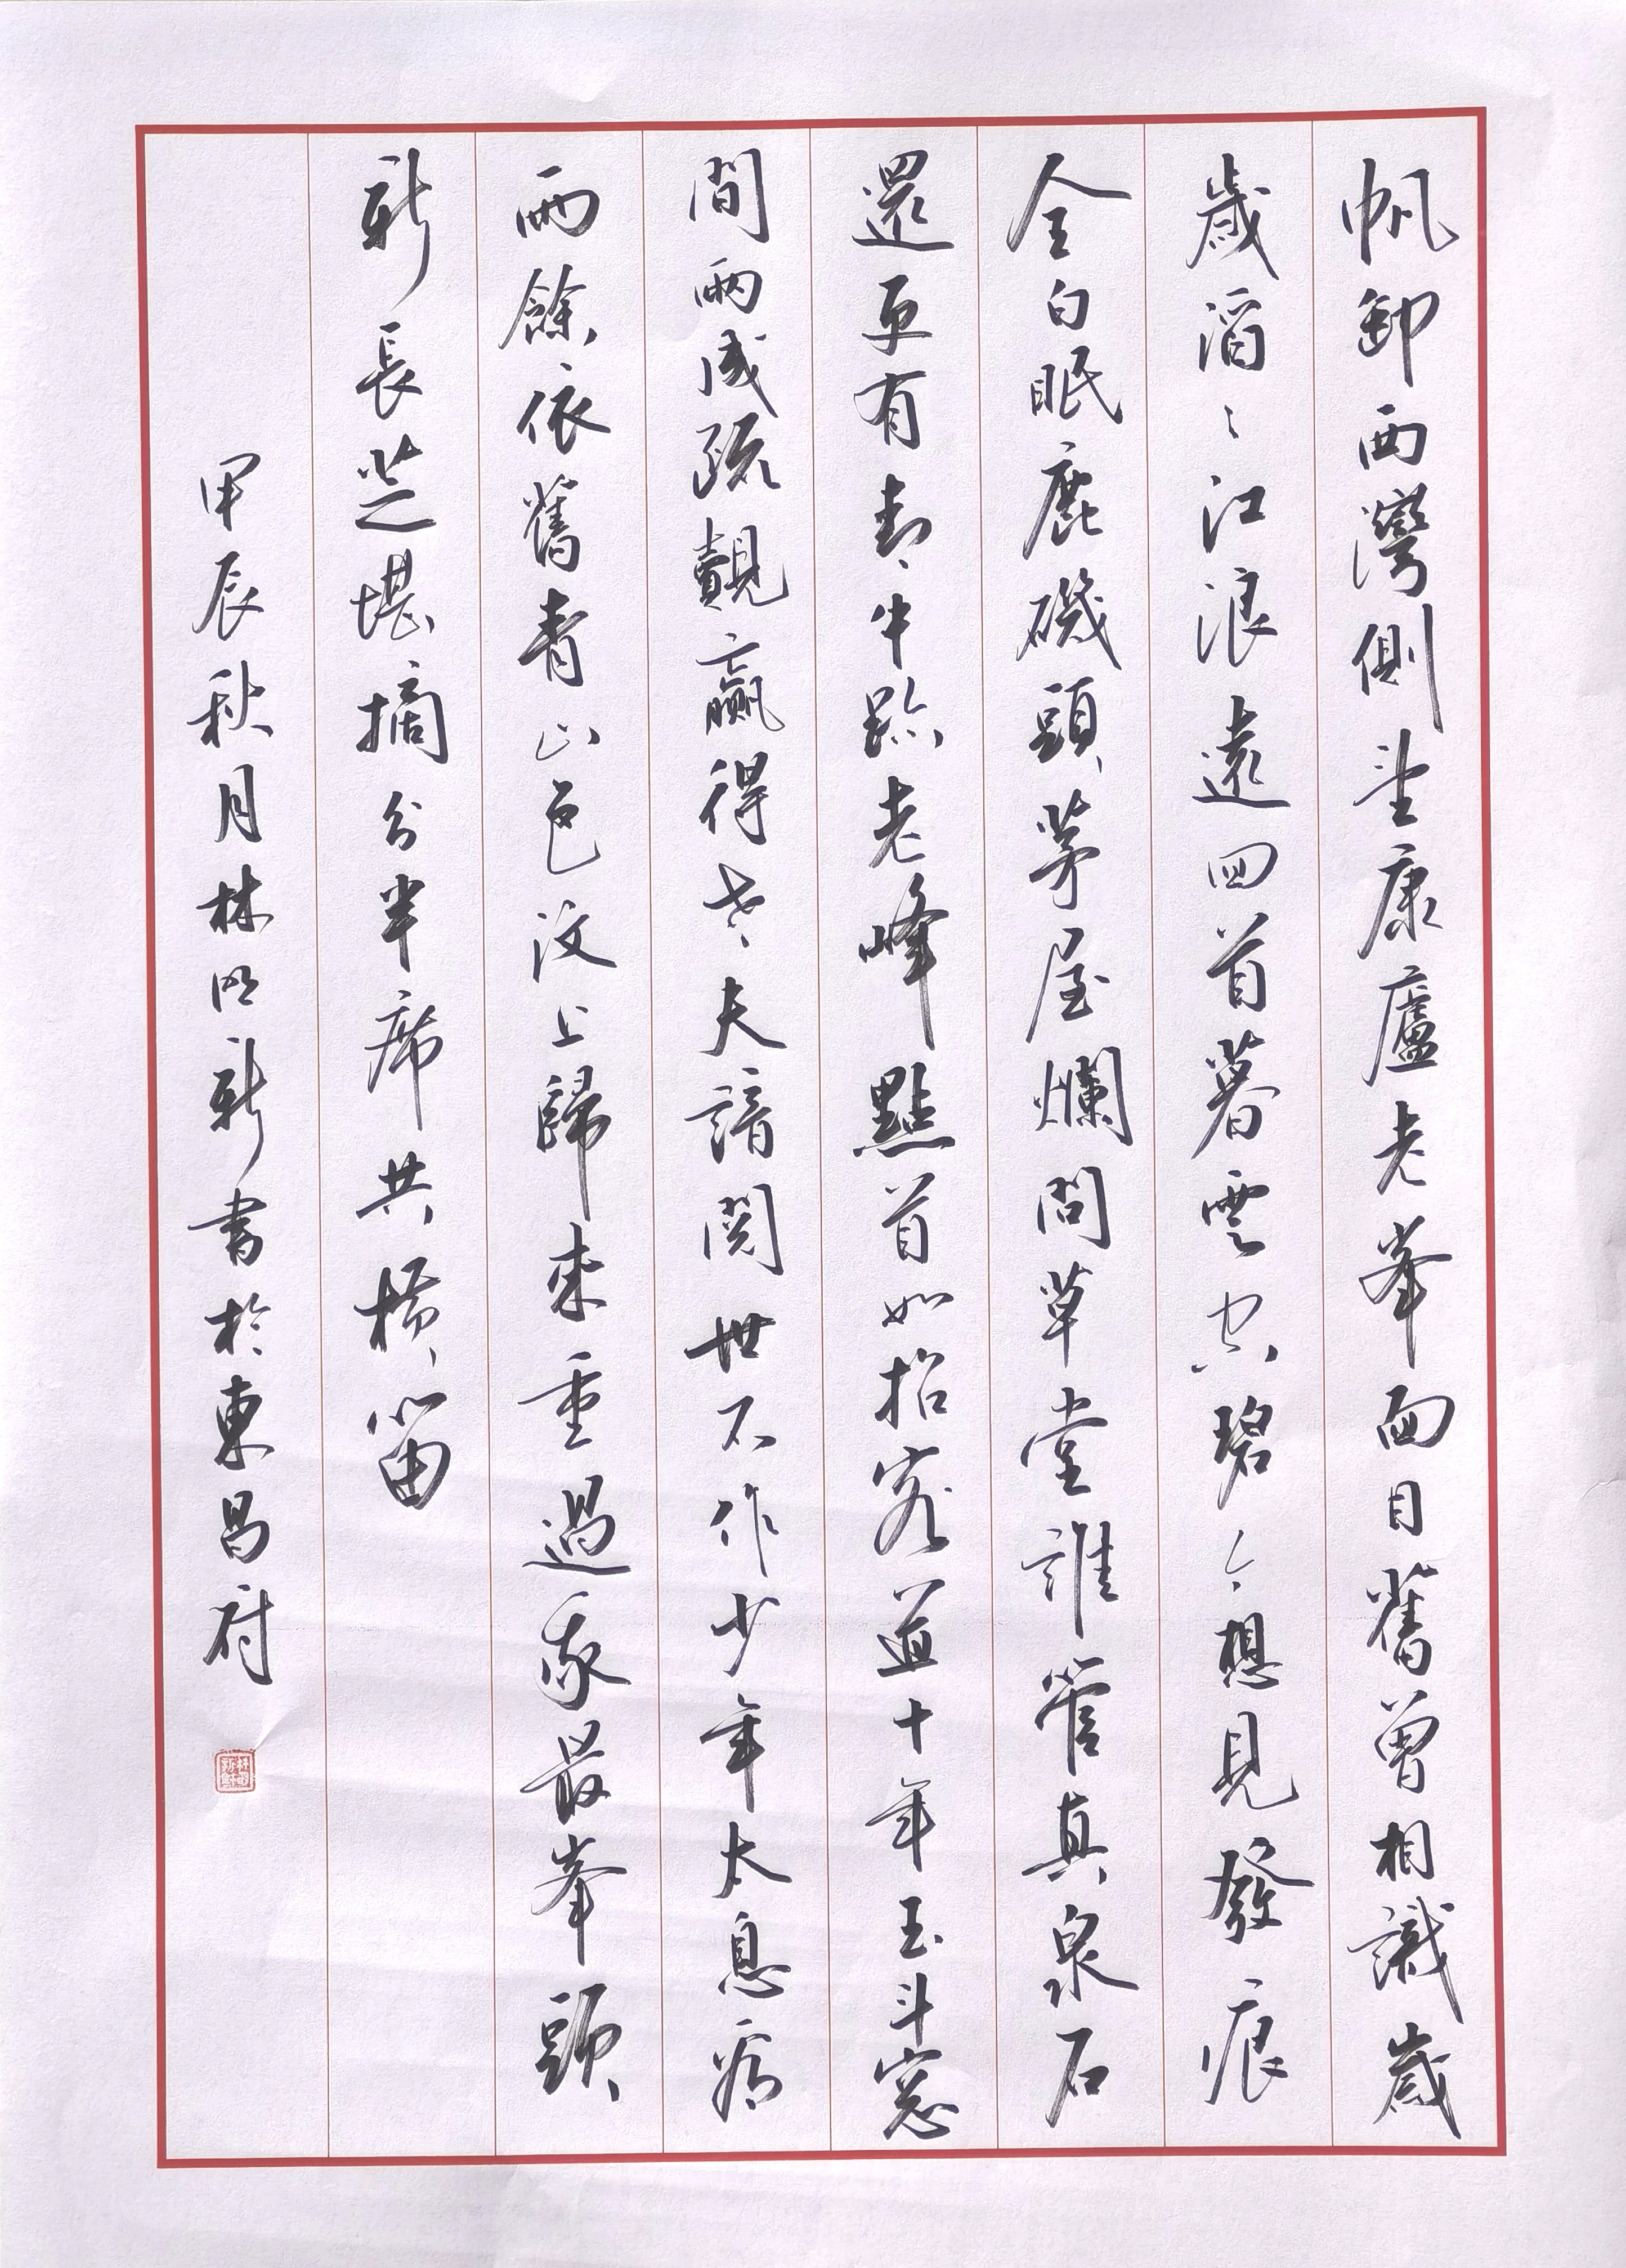 帆卸西灣側望康廬老峯面目舊曾相識歲
歲滔〻江浪遠回首暮雲空碧今想見發痕
全白眠鹿磯頭茅屋爛問草堂誰管真泉石
還更有牛跡老峰點首如招客道十年玉斗窓
間兩成疏覿贏得老夫諳閱世不作少年太息看
雨餘依舊青山色汶上歸來重過我最峯頭
新長芝堪摘分半席共橫笛
甲辰秋月林明新書於東昌府